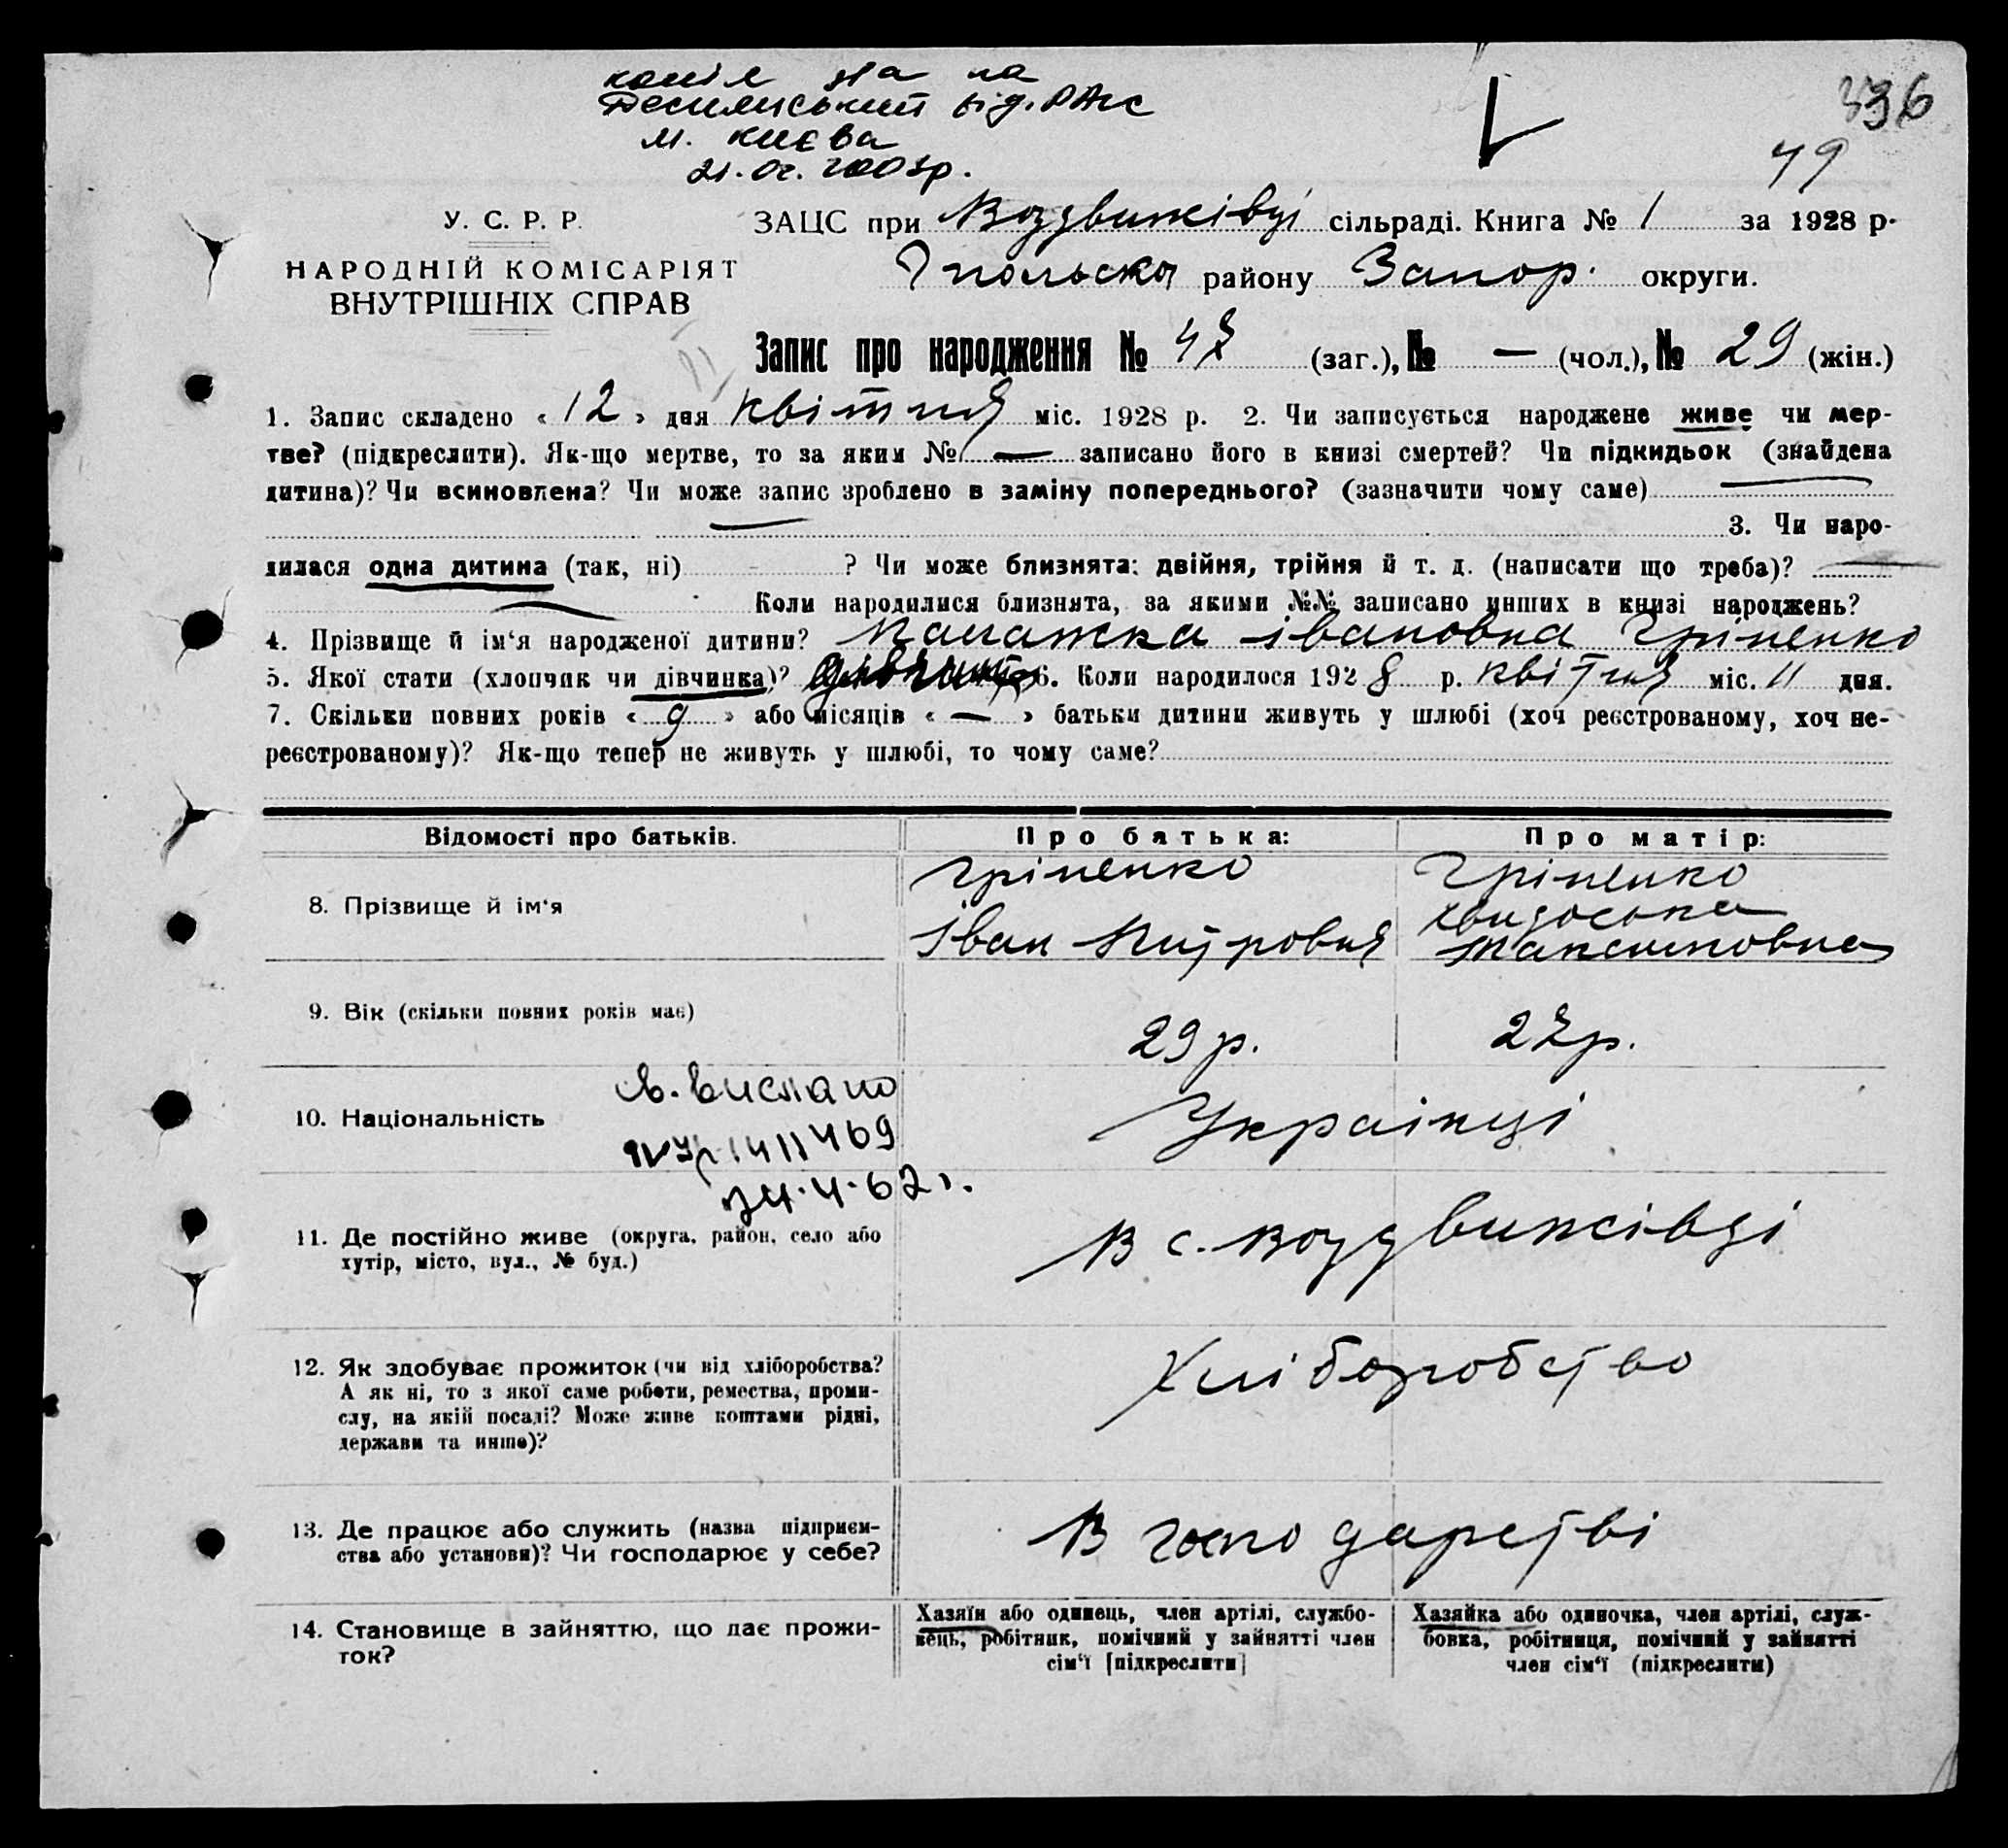 копія на
Деснянський від. РАГС
м. Києва
21.02.2003р.
396
49
У. С. Р. Р.
НАРОДНІЙ КОМІСАРІЯТ
ВНУТРІШНІХ СПРАВ
ЗАЦС при Воздвижівці сільраді. Книга № 1 за 1928 р.
Гпольськ району Запор. округи.
Запис про народження № 47 (заг.), № — (чол.), № 29 (жін.)
1. Запис складено « 12 » дня квітня міс. 1928 р. 2. Чи записується народжене живе чи мер-
тве? (підкреслити). Як-що мертве, то за яким № — записано його в книзі смертей? Чи підкидьок (знайдена
дитина)? Чи всиновлена? Чи може запис зроблено в заміну попереднього? (зазначити чому саме) —
— 3. Чи наро-
дилася одна дитина (так, ні) ? Чи може близнята: двійня, трійня й т. д. (написати що треба)? —
— Коли народилися близнята, за якими №№ записано инших в книзі народжень?
4. Прізвище й ім‘я народженої дитини? Палажка Івановна Гріненко
5. Якої стати (хлопчик чи дівчинка)? 6. Коли народилося 1928 р. квітня міс. 11 дня.
7. Скільки повних років « 9 » або місяців « — » батьки дитини живуть у шлюбі (хоч реєстрованому, хоч не-
реєстрованому)? Як-що тепер не живуть у шлюбі, то чому саме?
Відомості про батьків. Про батька: Про матір:
8. Прізвище й ім‘я
Гріненко
Іван Питровия
Гріненко
Хвидоська
Максимовна
9. Вік (скільки повних років має) 29 р. 27 р.
10. Національність Украінці
в. вислано
1411469
24.4.62 г.
11. Де постійно живе (округа, район, село або
хутір, місто, вул., № буд.)
В с. Воздвижівці
12. Як здобуває прожиток (чи від хліборобства?
А як ні, то з якої саме роботи, ремества, проми-
слу, на якій посаді? Може живе коштами рідні,
держави та инше)?
Хліборобство
13. Де працює або служить (назва підприєм-
ства або установи)? Чи господарює у себе?
В господарстві
14. Становище в зайняттю, що дає прожи-
ток?
Хазяїн або одинець, член артілі, службо-
вець, робітник, помічний у зайнятті член
сім‘ї [підкреслити]
Хазяйка або одиночка, член артілі, служ-
бовка, робітниця, помічний у зайнятті
член сім‘ї (підкреслити)